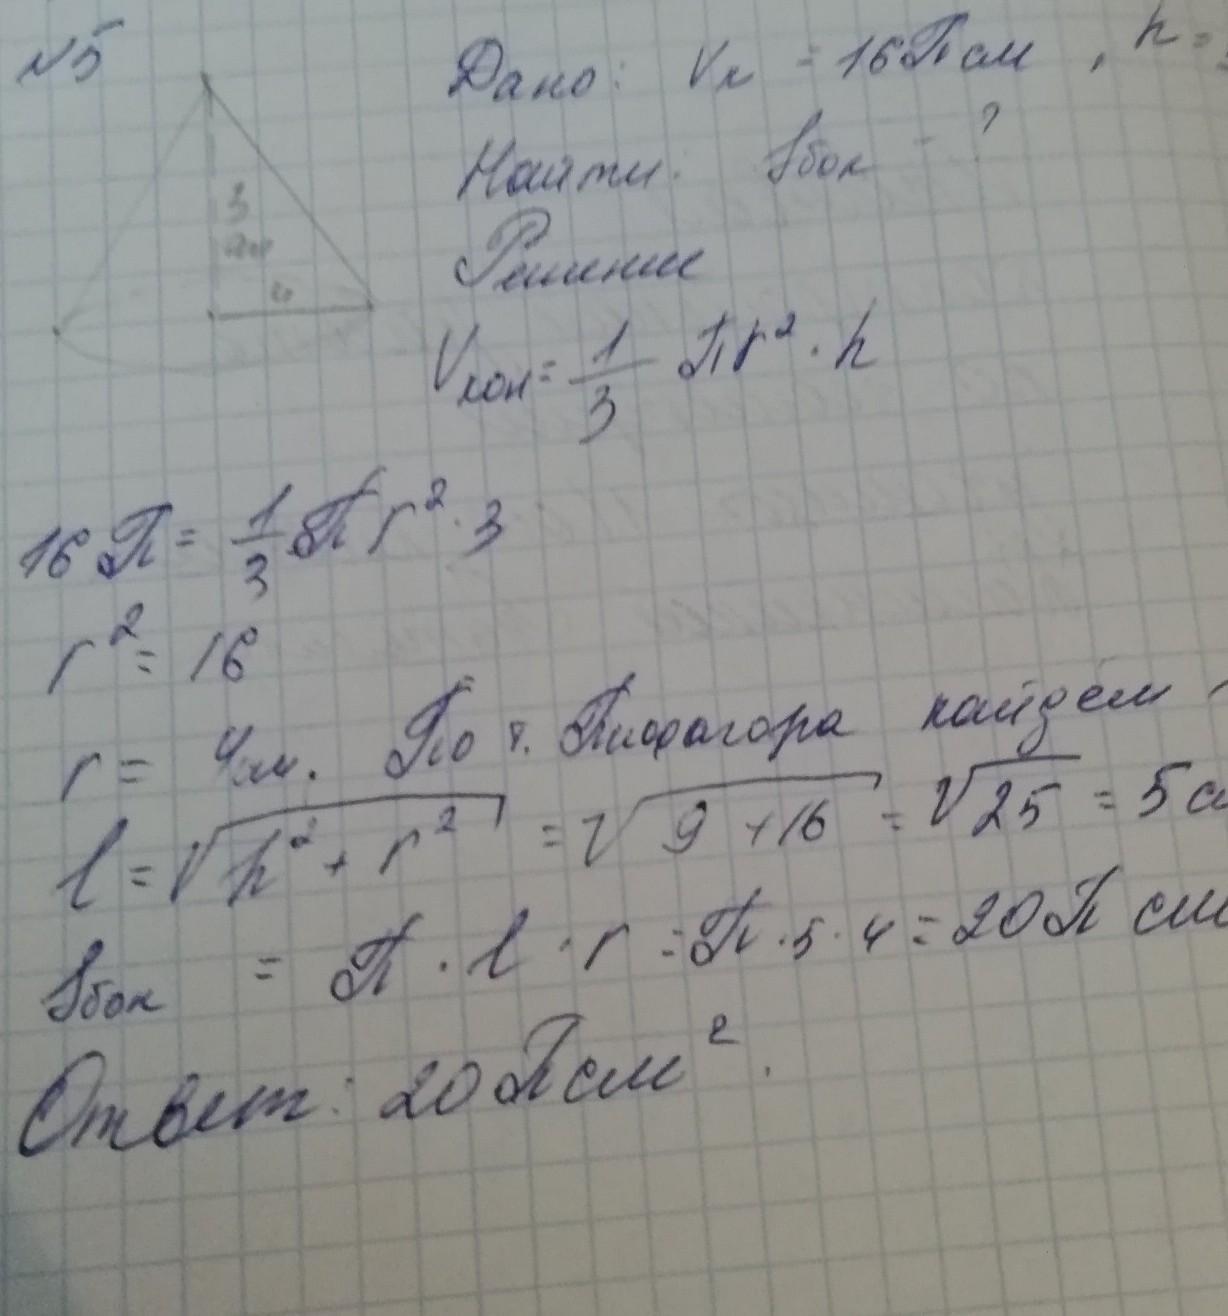 №5
Дано: Vк = 16П см, h =
Найти: Sбок - ?
Решение
3
см
4
Vкон = 1/3 Пr² · h
16П = 1/3 Пr² · 3
r² = 16
r = 4см. По т. Пифагора найдём
l = √(h² + r²) = √(9 + 16) = √25 = 5 с
Sбок = П · l · r = П · 5 · 4 = 20П см
Ответ: 20П см².